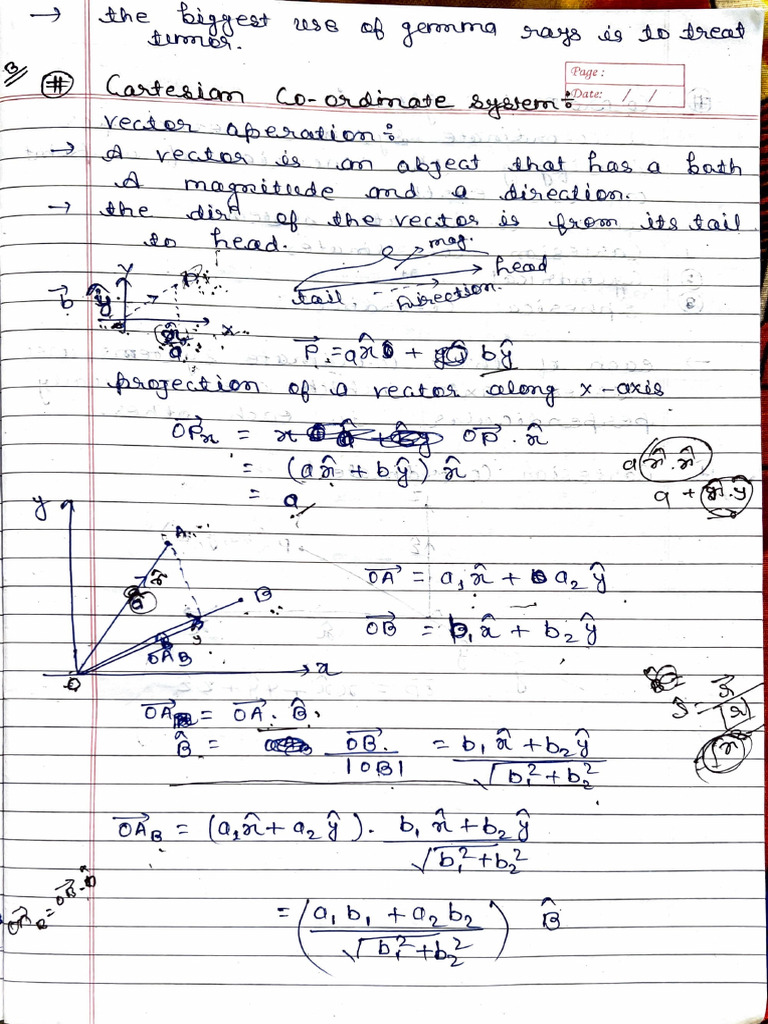 → the biggest use of gemma rays is to treat
tumor.
Page :
Date: / /
# Cartesian Co-ordinate system:
vector operation:
→ A vector is an object that has a both
A magnitude and a direction.
→ the dirⁿ of the vector is from its tail
to head.
mag.
head
tail
Direction.
y
b⃗ ŷ
x
x̂
a
P⃗ = a x̂ + b ŷ
projection of a vector along x-axis
OP⃗x = OP⃗ . x̂
= (a x̂ + b ŷ) x̂
= a
a x̂ . x̂
a + x̂ . ŷ
y
A
B
OA⃗B
O
x
OA⃗ = a₁ x̂ + a₂ ŷ
OB⃗ = b₁ x̂ + b₂ ŷ
OA⃗B = OA⃗ . B̂
B̂ = OB⃗ / |OB| = (b₁ x̂ + b₂ ŷ) / √(b₁² + b₂²)
OA⃗B = (a₁ x̂ + a₂ ŷ) . (b₁ x̂ + b₂ ŷ) / √(b₁² + b₂²)
= ((a₁ b₁ + a₂ b₂) / √(b₁² + b₂²)) B̂